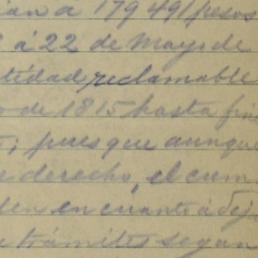 á 17949 pesos
á 22 de Mayo de
tidad reclamable
de 1815 hasta fin
pues que aunque
derecho, el cum
den en cuanto á dej
trámites segun